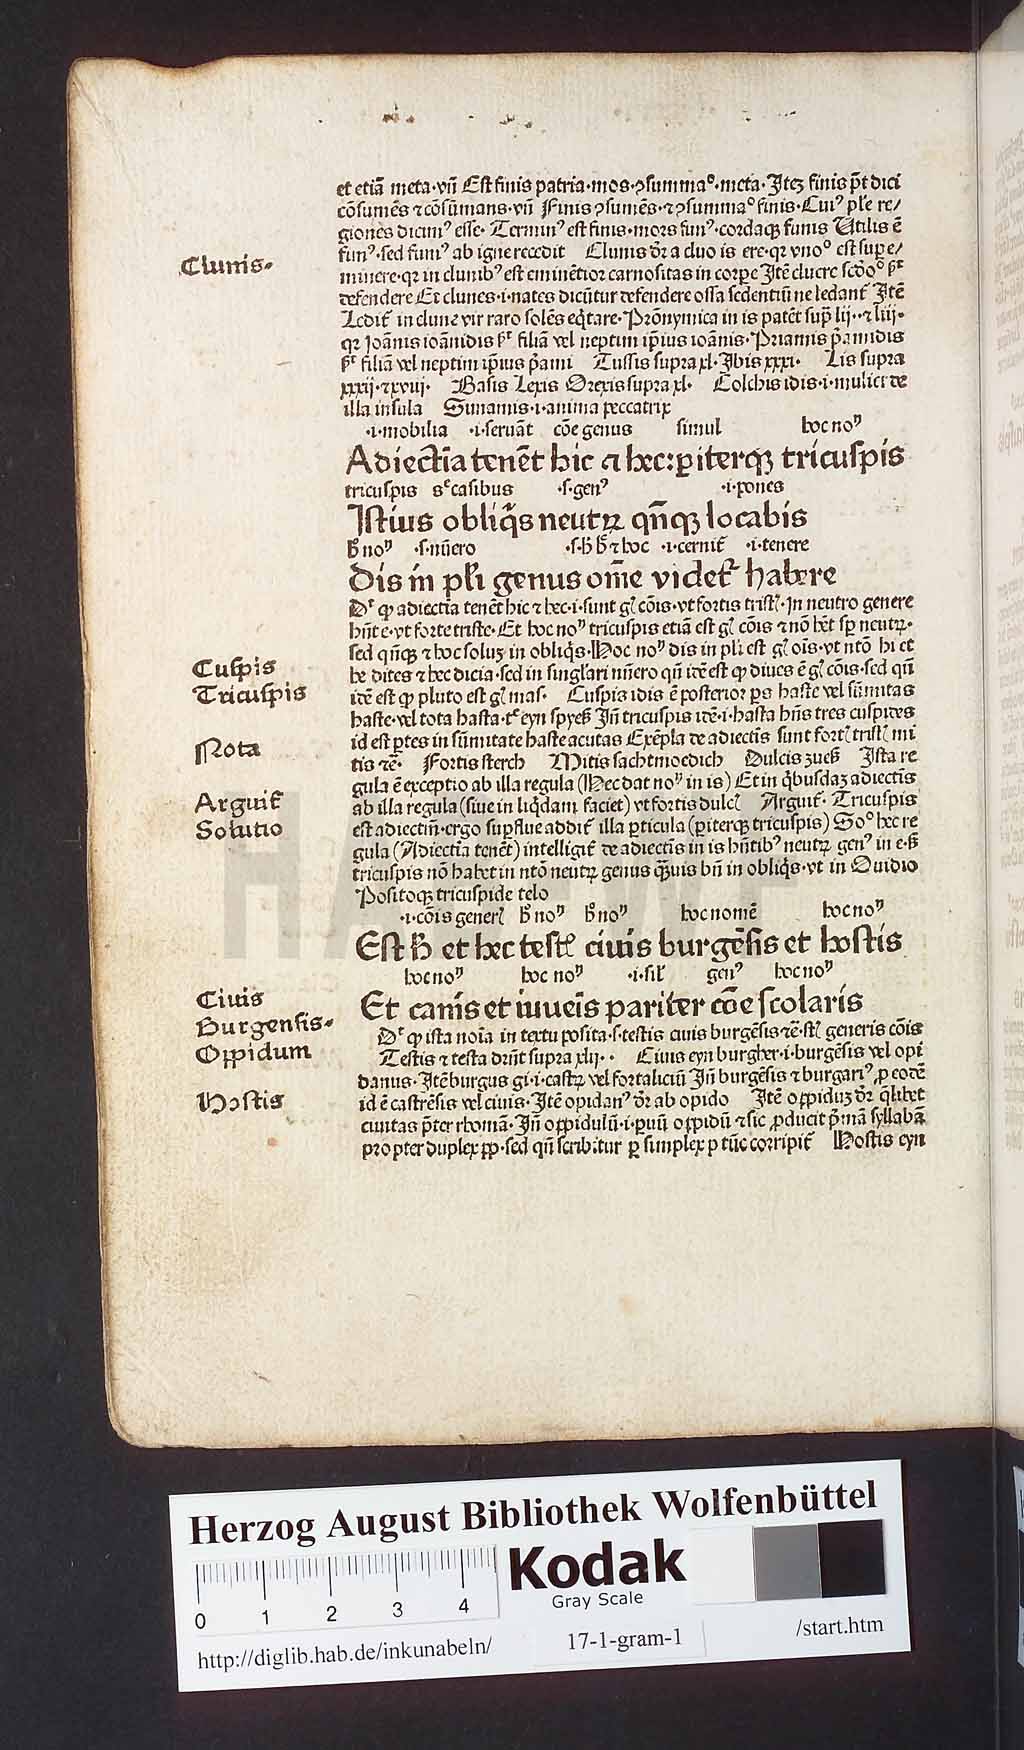 et etiā meta·vñ Est finis patria·mos·ꝯsummaᵒ·meta·Itez finis p̄t dici
cōsumēs ⁊ cōsūmans·vñ Finis ꝯsumēs·⁊ ꝯsummaᵒ finis·Cuiꝰ pl'e re/
giones dicimꝰ esse· Terminꝰ est finis·mors funꝰ·cordaqꝫ funis Utilis ē
funꝰ·sed funiꝰ ab igne recedit Clunis dr̄ a cluo is ere·qr vnoᵒ est supe/
Clunis·
minere·qr in clunibꝰ est eminētior carnositas in corpe Itē cluere scd̄oᵒ
defendere Et clunes·i·nates dicūtur defendere ossa sedentiū ne ledant̄ Itē
Ledit̄ in clune vir raro solēs eq̄tare·Prōnymica in is patēt sup̄ lij··⁊ liij·
qr Joānis ioānidis filiā vel neptim ip̄ius ioānis·Priamis p̄amidis
filiā vel neptim ip̄ius p̄ami Tussis supra xl·Ibis xxxi· Lis supra
xxxij·⁊xvij· Basis Lexis Orexis supra xl· Colchis idis·i·mulier de
illa insula Sunamis·i·anima peccatrix
·i·mobilia ·i·seruāt cōe genus simul hoc noᵑ
Adiectīa tenēt hic ⁊ hec:ꝑiterqꝫ tricuspis
tricuspis sᶜ casibus ·s·genꝰ ·i·pones
Istius obliq̄s neutrꝝ qn̄qꝫ locabis
h̄ noᵑ ·s·nūero ·s·h̄ h̄ ⁊ hoc ·i·cernit̄ ·i·tenere
Dis in pl'i genus om̄e videt̄ habere
Dʳ ꝙ adiectīa tenēt hic ⁊ hec·i·sunt gl' cōis·vt fortis trist'·In neutro genere
hn̄t e·vt forte triste·Et hoc noᵑ tricuspis etiā est gl' cōis ⁊ nō hēt sp neutrꝝ·
sed qn̄qꝫ ⁊ hoc soluꝫ in obliq̄s·Hoc noᵑ dis in pl'i est gl' oīs·vt ntō hi et
he dites ⁊ hec dicia·sed in singl'ari nūero qn̄ idē est ꝙ diues ē gl' cōis·sed qn̄
Cuspis
Tricuspis
idē est ꝙ pluto est gl' mas· Cuspis idis ē posterior ps haste vel sūmitas
haste·vel tota hasta·tᶜ eyn spyeß Jn̄ tricuspis idē·i·hasta hn̄s tres cuspides
id est ꝑtes in sūmitate haste acutas Exēpla de adiectīs sunt fort' trist' mi
Nota
tis ⁊ē· Fortis sterch Mitis sachtmoedich Dulcis zueß Ista re
gula ē exceptio ab illa regula (Hec dat noᵑ in is) Et in q̄busdaꝫ adiectīs
ab illa regula (siue in liq̄dam faciet) vt fortis dulc' Arguit̄· Tricuspis
Arguit̄
Solutio
est adiectiū·ergo supflue addit̄ illa ꝑticula (ꝑiterqꝫ tricuspis) Soᵒ hec re
gula (Adiectīa tenēt) intelligit̄ de adiectīs in is hn̄tibꝰ neutrꝝ genꝰ in e·ß
tricuspis nō habet in ntō neutrꝝ genus qꝫuis bn̄ in obliq̄s·vt in Ouidio
Positoqꝫ tricuspide telo
·i·cōis gener' h̄ noᵑ h̄ noᵑ hoc nomē hoc noᵑ
Est h̄ et hec test' ciuis burgēsis et hostis
hoc noᵑ hoc noᵑ ·i·sil' genꝰ hoc noᵑ
Et canīs et iuueīs pariter cōe scolaris
Ciuis
Burgensis·
Oppidum
Dʳ ꝙ ista noīa in textu posita·s·testis ciuis burgēsis ⁊ē·st' generis cōis
Testis ⁊ testa drn̄t supra xlij·· Ciuis eyn burgher·i·burgēsis vel opi
danus·Itē burgus gi·i·castrꝝ vel fortaliciū Jn̄ burgēsis ⁊ burgariꝰ ꝓ eodē
Hostis
id ē castrēsis vel ciuis·Itē opidanꝰ dr̄ ab opido Itē oppiduꝫ dr̄ ql̄ibet
ciuitas p̄ter rhomā·Jn̄ oppidulū·i·puū oppidū ⁊ sic ꝓducit p̄mā syllabā
propter duplex pp·sed qn̄ scribitur ꝑ simplex p tūc corripit̄ Hostis eyn
Herzog August Bibliothek Wolfenbüttel
Kodak
Gray Scale
0 1 2 3 4
http://diglib.hab.de/inkunabeln/
17-1-gram-1
/start.htm
HAB WF